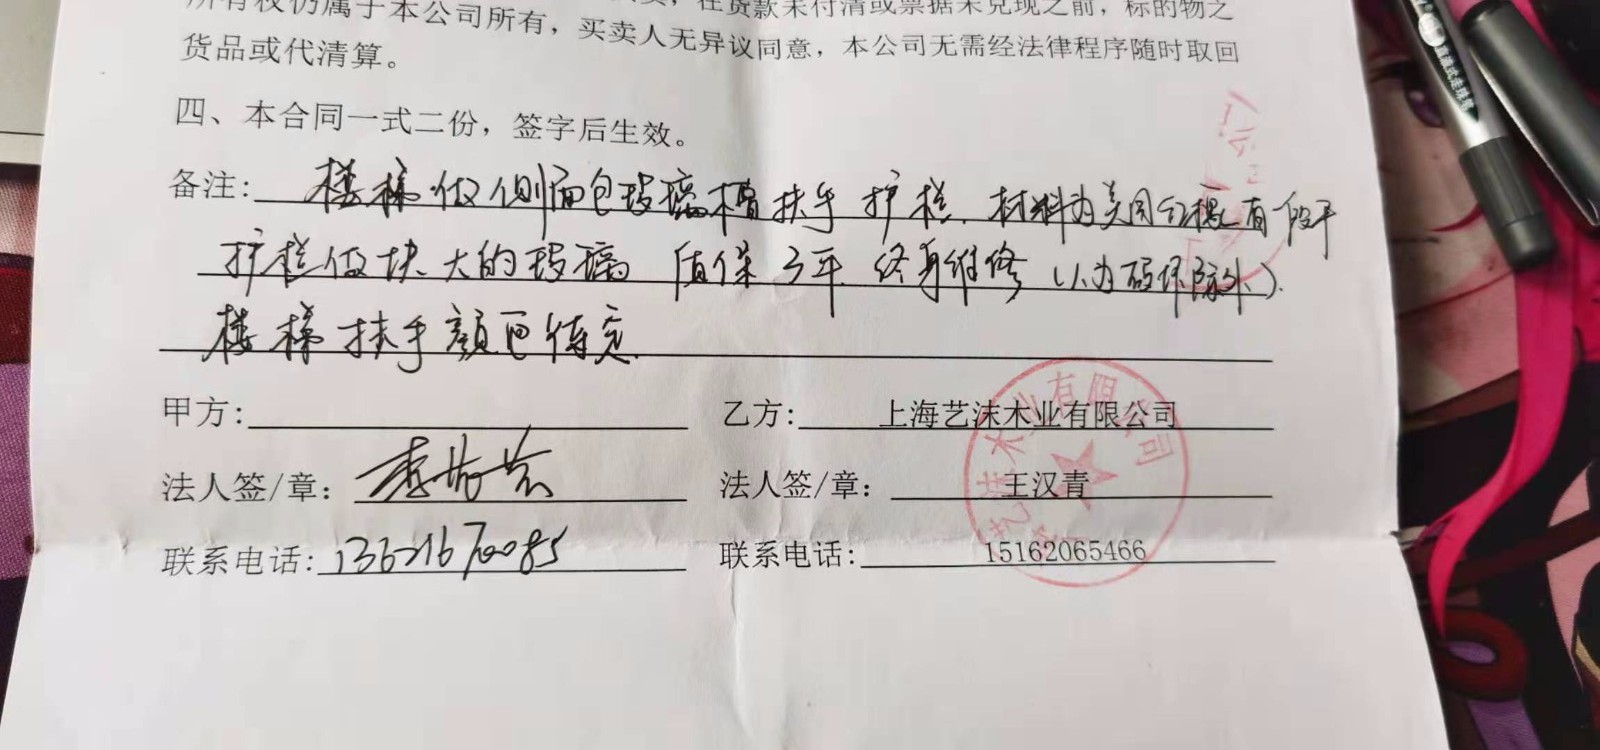 所有权仍属于本公司所有，买卖人无异议同意，在货款未付清或票据未兑现之前，标的物之
货品或代清算。 本公司无需经法律程序随时取回
四、本合同一式二份，签字后生效。
备注: 楼梯做侧面包玻璃槽扶手护栏.材料为美国红橡有一段平
护栏做块大的玻璃 质保3年 终身维修(人为破坏除外).
楼梯扶手颜色待定.
甲方: 乙方: 上海艺沫木业有限公司
法人签/章: 法人签/章: 王汉青
联系电话: 13621670085 联系电话: 15162065466
艺沫木业有限公司